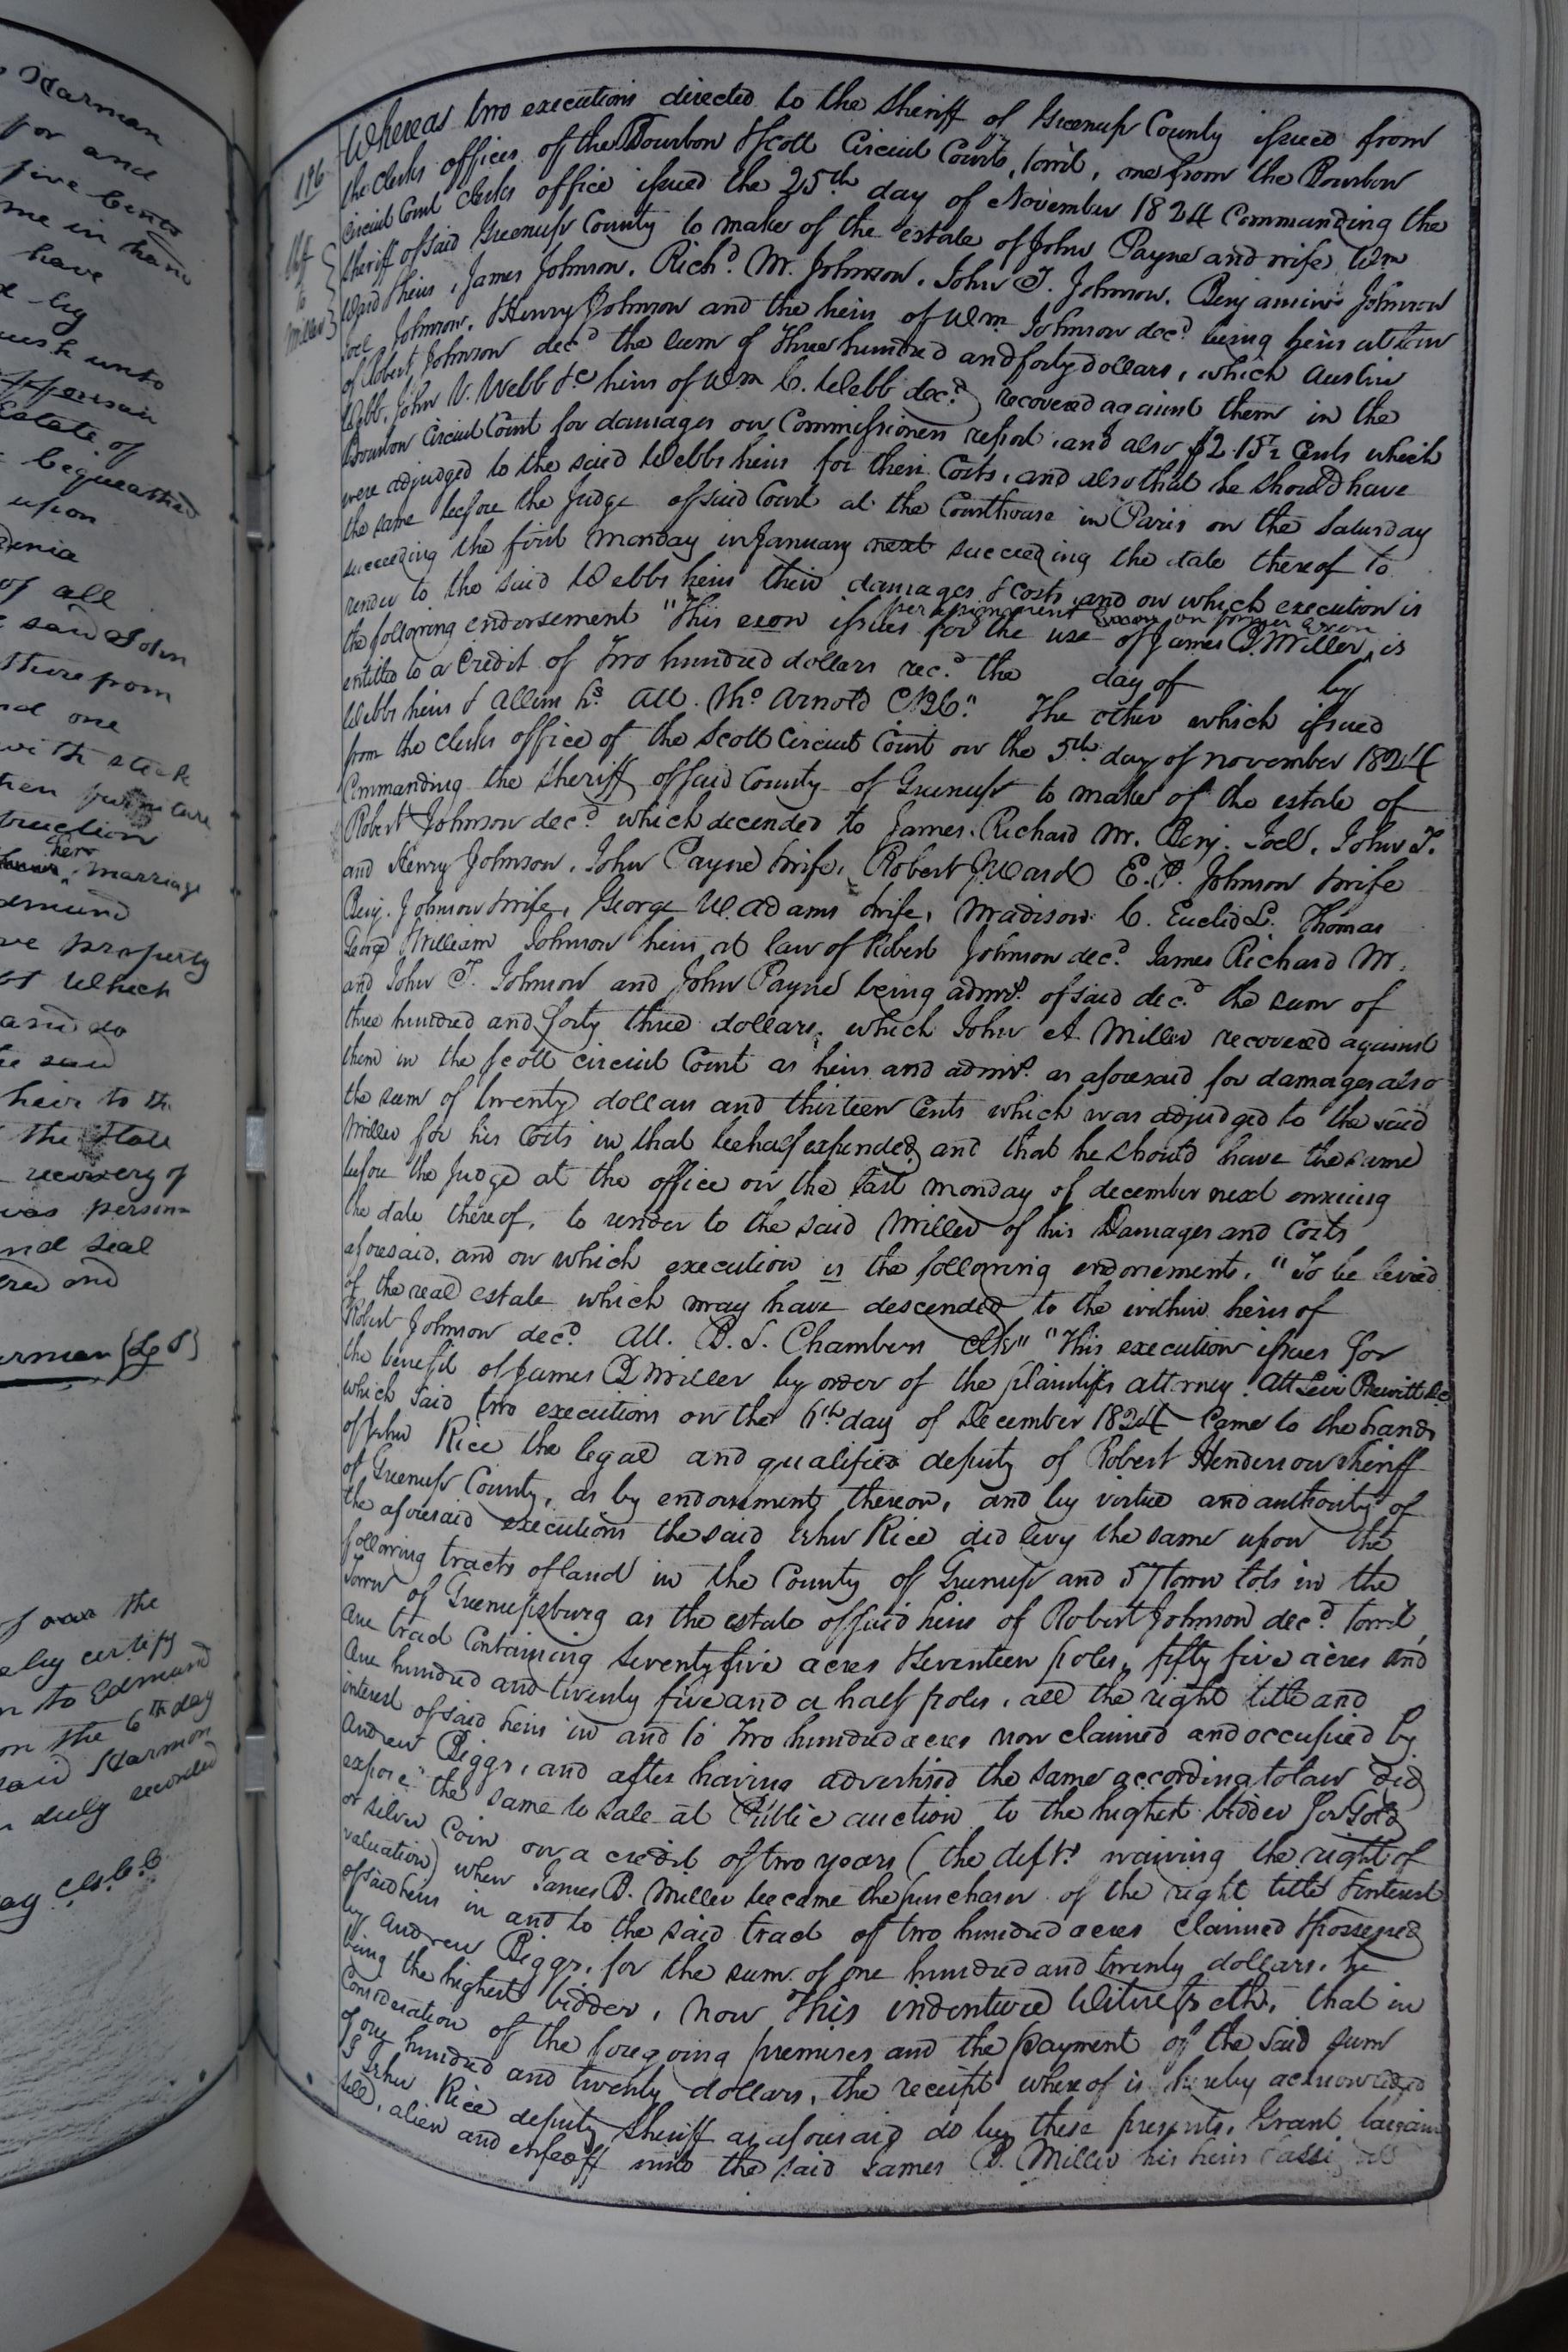 Harman
for and
five Cents
me in hand
have
by
unto
Estate of
bequeathed
upon
of all
said John
therefrom
and one
with steele
her
marriage
property
of which
and do
heir to the
the State
recovery of
was person-
and seal
and
{L S}
was the
certify
to Edmund
on the 6th day
said Harmon
duly recorded
186
Shff
to
Miller
Whereas two executions directed to the Sheriff of Greenup County issued from
the clerks offices of the Bourbon & Scott Circuit Courts, towit, one from the Bourbon
Circuit Court Clerks office issued the 25th day of November 1824 Commanding the
Sheriff of said Greenup County to make of the estate of John Payne and wife, Wm
Ward & heirs, James Johnson, Richd. M. Johnson, John T. Johnson, Benjamin Johnson
Joel Johnson, Henry Johnson and the heirs of Wm Johnson decd. being heirs at law
of Robert Johnson decd. the sum of Three hundred and forty dollars, which Austin
Webb, John V. Webb &c heirs of Wm C. Webb decd. recovered against them in the
Bourbon Circuit Court for damages on Commissioners report, and also $2.15½ Cents which
were adjudged to the said Webbs heirs for their Costs, and also that he should have
the same before the Judge of said Court at the Courthouse in Paris on the Saturday
succeeding the first Monday in January next succeeding the date thereof to
render to the said Webbs heirs their damages & costs, and on which execution is
per on former Exon
the following endorsement "This exon issues for the use of James B. Miller, is
entitled to a Credit of Two hundred dollars recd. the day of by
Webbs heirs & Att. Tho Arnold The other which issued
from the clerks office of the Scott Circuit Court on the 5th day of November 1824
Commanding the Sheriff of said County of Greenup to make of the estate of
Robert Johnson decd. which decended to James, Richard M. Benj. Joel, John T.
and Henry Johnson, John Payne & wife, Robert J. Ward E. P. Johnson & wife
Benj. Johnson & wife, George W. Adams & wife, Madison C. Euclid L. Thomas
George William Johnson heirs at law of Robert Johnson decd. James Richard M.
and John T. Johnson and John Payne being admrs. of said decd. the sum of
three hundred and forty three dollars, which John A. Miller recovered against
them in the Scott circuit Court as heirs and admrs. as aforesaid for damages also
the sum of twenty dollars and thirteen Cents which was adjudged to the said
Miller for his Costs in that behalf expended, and that he should have the same
before the Judge at the office on the last Monday of december next ensuing
the date thereof, to render to the said Miller of his Damages and Costs
aforesaid, and on which execution is the following endorsement, "To be levied
of the real estate which may have descended to the within heirs of
Robert Johnson decd. Att. B. S. Chambers Clk" "This execution issues for
the benefit of James B Miller by order of the plaintiffs attorney. Att Levi Prewitt Dc
which said two executions on the 6th day of December 1824 Came to the hands
of John Rice the legal and qualified deputy of Robert Henderson Sheriff
of Greenup County, as by endorsements thereon, and by virtue and authority of
the aforesaid executions the said John Rice did levy the same upon the
following tracts of land in the County of Greenup and 57 town lots in the
Town of Greenupsburg as the estate of said heirs of Robert Johnson decd. towit,
One tract Containing Seventy five acres & Seventeen poles, fifty five acres and
One hundred and twenty five and a half poles, all the right title and
interest of said heirs in and to Two hundred acres now claimed and occupied by
Andrew Biggs, and after having advertised the same according to law did
expose the same to sale at Public auction to the highest bidder for Gold
or silver Coin on a credit of two years (the defts. waiving the right of
valuation) when James B. Miller became the purchaser of the right title & interest
of said heirs in and to the said tract of two hundred acres claimed & possessed
by Andrew Biggs, for the sum of one hundred and twenty dollars, he
being the highest bidder, Now This indenture Witnesseth, that in
Consideration of the foregoing premises and the payment of the said sum
of one hundred and twenty dollars, the receipt whereof is hereby acknowledged
I John Rice deputy Sheriff as aforesaid do by these presents, Grant bargain
sell, alien and enfeoff unto the said James B. Miller his heirs &